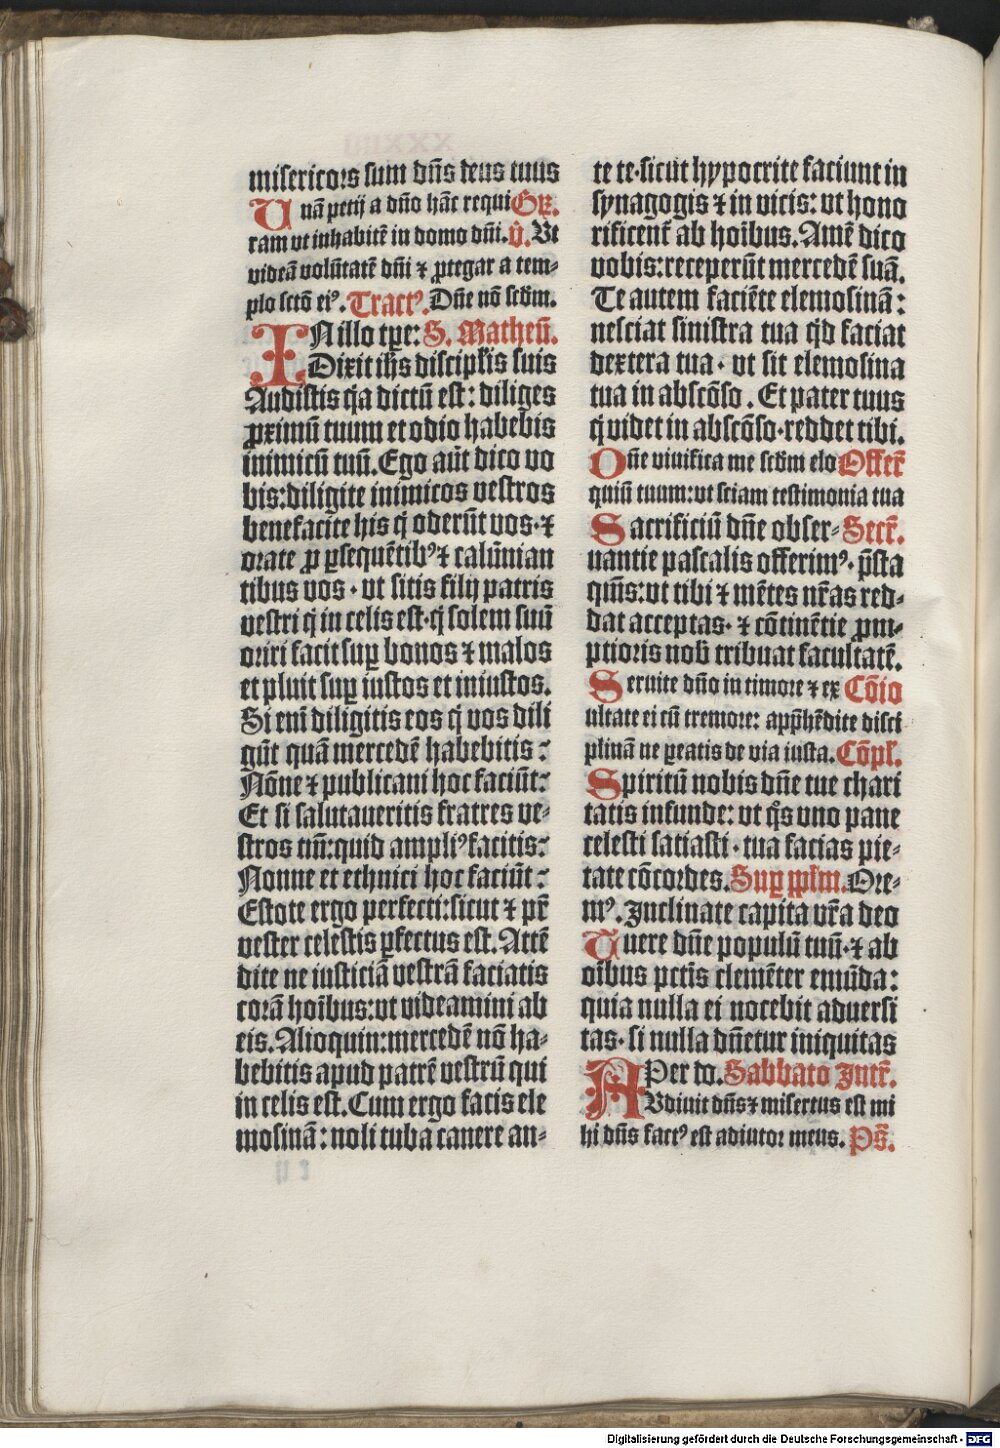 misericors sum dn̄s deus tuus
Unā petij a dn̄o hāc requi Gr̄.
ram vt inhabitē in domo dn̄i. v̄. Vt
videā volūtatē dn̄i ⁊ ꝓtegar a tem-
plo sctō eiꝰ. Tractꝰ. Dn̄e nō scd̄m.
IN illo tp̄e: S. Matheū.
Dixit ih̄s discipl̄is suis
Audistis qꝛa dictū est: diliges
ꝓximū tuum et odio habebis
inimicū tuū. Ego aūt dico vo
bis: diligite inimicos vestros
benefacite his q̇ oderūt vos· ⁊
orate ꝓ ꝑsequētibꝰ ⁊ calūnian
tibus vos· vt sitis filij patris
vestri q̇ in celis est· q̇ solem suū
oriri facit suꝑ bonos ⁊ malos
et pluit suꝑ iustos et iniustos.
Si eni diligitis eos q̇ vos dili
gūt quā mercedē habebitis:
Nōne ⁊ publicani hoc faciūt:
Et si salutaueritis fratres ve-
stros tm̄: quid ampliꝰ facitis:
Nonne et ethnici hoc faciūt:
Estote ergo perfecti: sicut ⁊ pr̄
vester celestis ꝑfectus est. Attē
dite ne iusticiā vestrā faciatis
corā hoībus: vt videamini ab
eis. Alioquin: mercedē nō ha-
bebitis apud patrē vestrū qui
in celis est. Cum ergo facis ele
mosinā: noli tuba canere an-
te te· sicut hypocrite faciunt in
synagogis ⁊ in vicis: vt hono
rificent̄ ab hoībus. Amē dico
vobis: receperūt mercedē suā.
Te autem faciēte elemosinā:
nesciat sinistra tua qd̄ faciat
dextera tua· vt sit elemosina
tua in abscōso. Et pater tuus
q̇ videt in abscōso· reddet tibi.
Dn̄e viuifica me scd̄m elo Offer̄
quiū tuum: vt sciam testimonia tua
Sacrificiū dn̄e obser- Secr̄.
uantie pascalis offerimꝰ· p̄sta
qm̄s: vt tibi ⁊ mētes nr̄as red-
dat acceptas· ⁊ cōtinētie ꝓm-
ptioris nob̄ tribuat facultatē.
Seruite dn̄o in timore ⁊ ex Cōio
ultate ei cū tremore: app̄hēdite disci
plinā ne ꝑeatis de via iusta. Cōpl̄.
Spiritū nobis dn̄e tue chari
tatis infunde: vt q̄s vno pane
celesti satiasti· tua facias pie-
tate cōcordes. Suꝑ ppl̄m. Ore-
mꝰ. Inclinate capita vr̄a deo
Tuere dn̄e populū tuū· ⁊ ab
oībus pctīs clemēter emūda:
quia nulla ei nocebit aduersi
tas· si nulla dn̄etur iniquitas
Per do. Sabbato Intr̄.
AVdiuit dn̄s ⁊ misertus est mi
hi dn̄s factꝰ est adiutor meus. Ps̄.
Digitalisierung gefördert durch die Deutsche Forschungsgemeinschaft - DFG